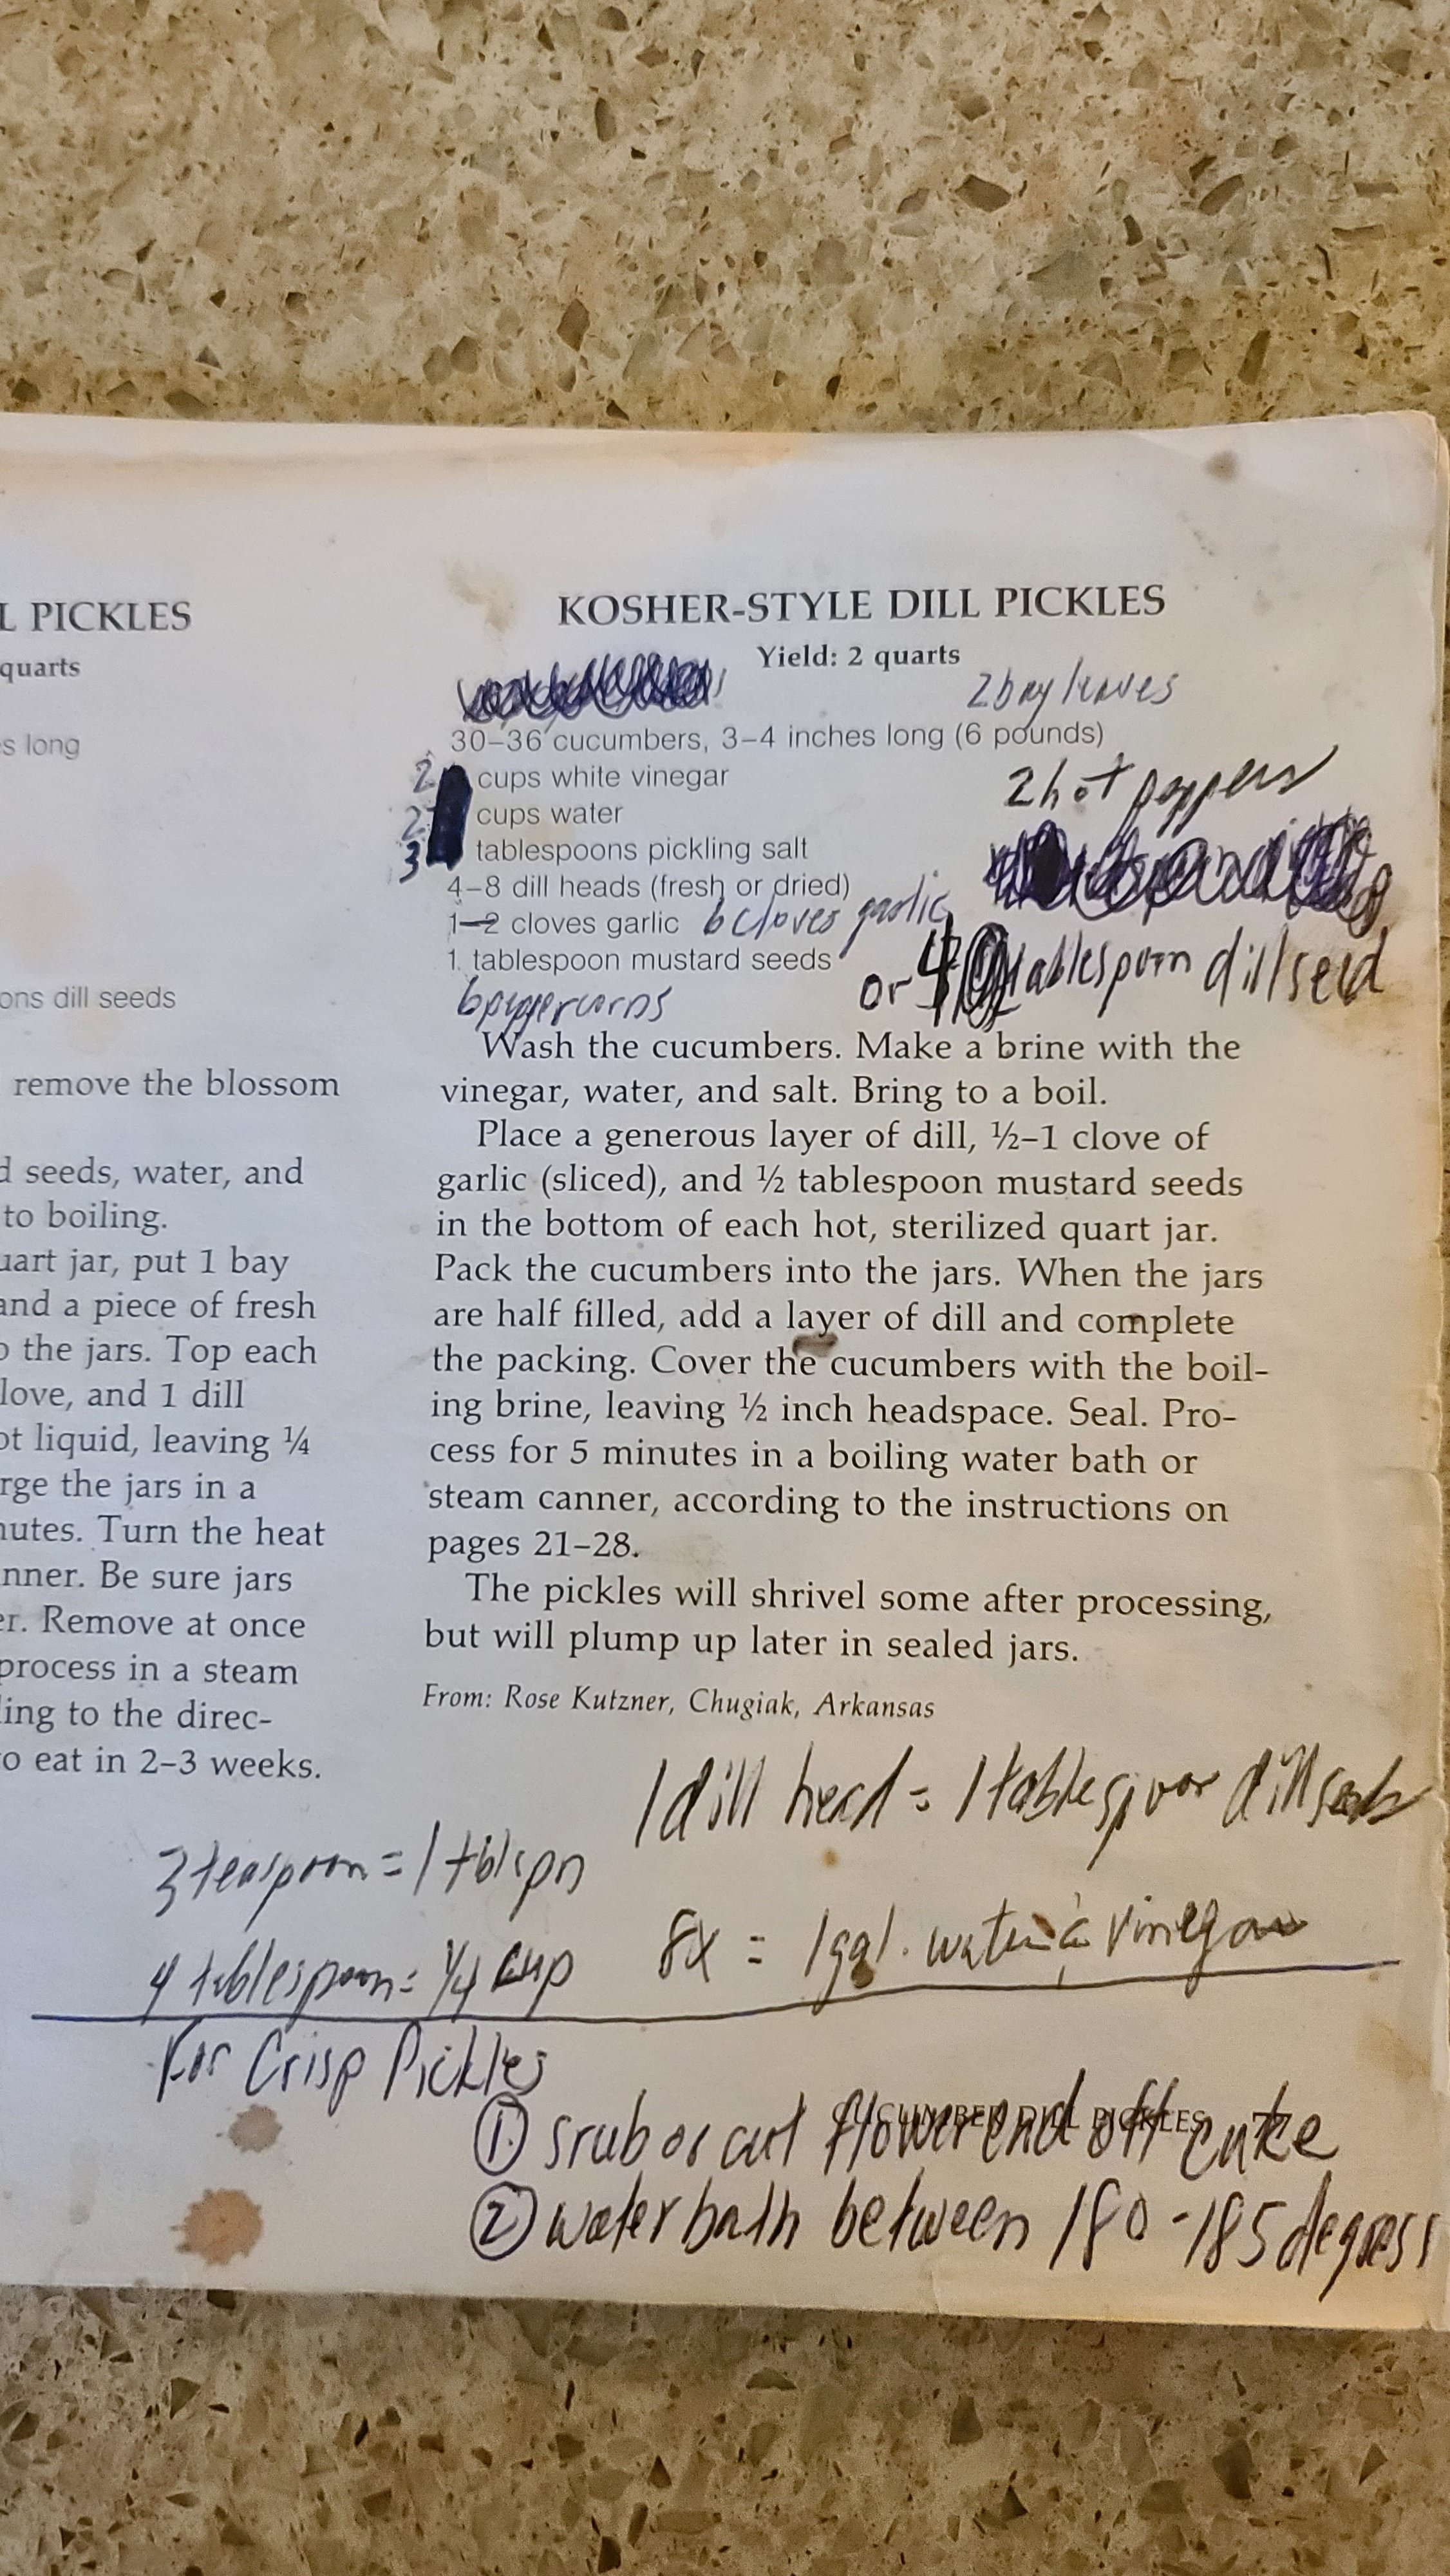 L PICKLES
quarts
s long
ons dill seeds
remove the blossom
d seeds, water, and
to boiling.
uart jar, put 1 bay
and a piece of fresh
o the jars. Top each
love, and 1 dill
ot liquid, leaving ¼
rge the jars in a
nutes. Turn the heat
nner. Be sure jars
er. Remove at once
process in a steam
ling to the direc-
o eat in 2–3 weeks.
KOSHER-STYLE DILL PICKLES
Yield: 2 quarts
2 bay leaves
30–36 cucumbers, 3–4 inches long (6 pounds)
2 cups white vinegar
2 hot peppers
2 cups water
3 tablespoons pickling salt
4–8 dill heads (fresh or dried)
1–2 cloves garlic 6 cloves garlic
1 tablespoon mustard seeds
or 4 tablespoon dill seed
6 peppercorns
Wash the cucumbers. Make a brine with the
vinegar, water, and salt. Bring to a boil.
Place a generous layer of dill, ½–1 clove of
garlic (sliced), and ½ tablespoon mustard seeds
in the bottom of each hot, sterilized quart jar.
Pack the cucumbers into the jars. When the jars
are half filled, add a layer of dill and complete
the packing. Cover the cucumbers with the boil-
ing brine, leaving ½ inch headspace. Seal. Pro-
cess for 5 minutes in a boiling water bath or
steam canner, according to the instructions on
pages 21–28.
The pickles will shrivel some after processing,
but will plump up later in sealed jars.
From: Rose Kutzner, Chugiak, Arkansas
1 dill head = 1 tablespoon dill seeds
3 teaspoon = 1 tblspn
8x = 1 gal. water & vinegar
4 tablespoon = ¼ cup
For Crisp Pickles
CUCUMBER DILL PICKLES
① srub or cut flower end off cuke
② water bath between 180-185 degress